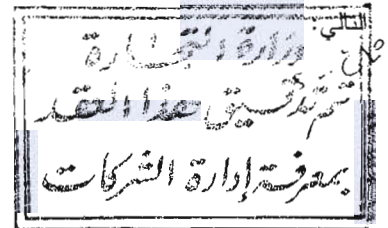 التالي:
وزارة التجارة
تم تدقيق هذا العقد
بمعرفة إدارة الشركات